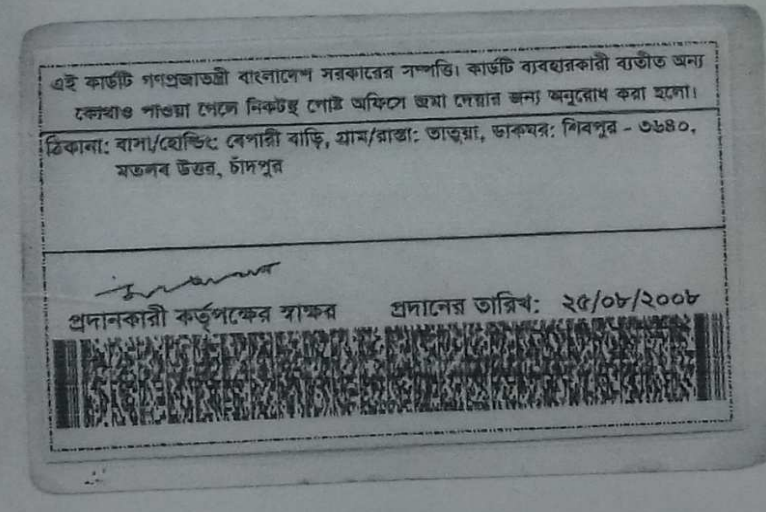 এই কার্ডটি গণপ্রজাতন্ত্রী বাংলাদেশ সরকারের সম্পত্তি। কার্ডটি ব্যবহারকারী ব্যতীত অন্য
কোথাও পাওয়া গেলে নিকটস্থ পোস্ট অফিসে জমা দেবার জন্য অনুরোধ করা হলো।
ঠিকানা: বাসা/হোল্ডিং: বেপারী বাড়ি, গ্রাম/রাস্তা: ডাকঘর: শিবপুর - ৩৬৪০,
মতলব উত্তর, চাঁদপুর
প্রদানকারী কর্তৃপক্ষের স্বাক্ষর প্রদানের তারিখ: ২৫/০৮/২০০৮